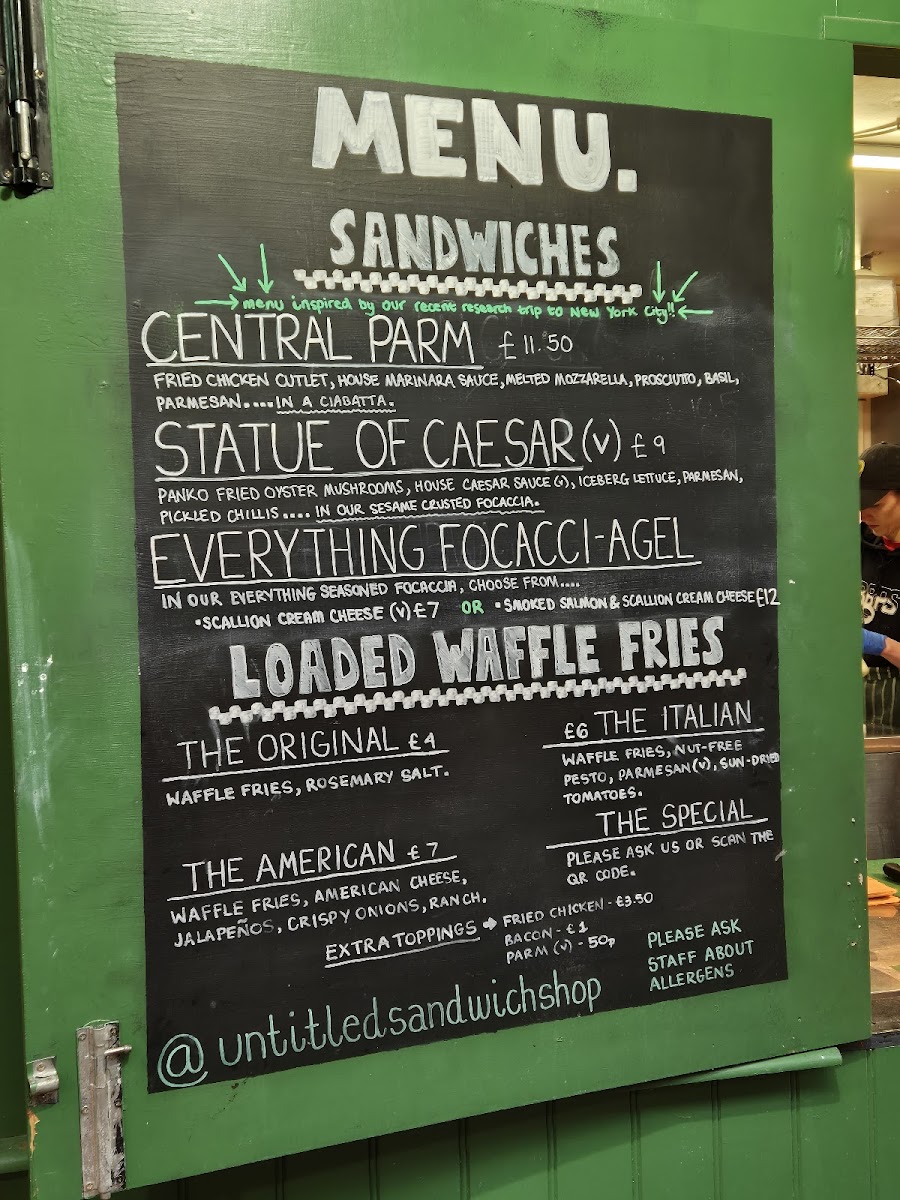 MENU.
SANDWICHES
menu inspired by our recent research trip to New York City!!
CENTRAL PARM £11.50
FRIED CHICKEN CUTLET, HOUSE MARINARA SAUCE, MELTED MOZZARELLA, PROSCIUTTO, BASIL,
PARMESAN.... IN A CIABATTA.
STATUE OF CAESAR (V) £9
PANKO FRIED OYSTER MUSHROOMS, HOUSE CAESAR SAUCE (V), ICEBERG LETTUCE, PARMESAN,
PICKLED CHILLIS.... IN OUR SESAME CRUSTED FOCACCIA.
EVERYTHING FOCACCI-AGEL
IN OUR EVERYTHING SEASONED FOCACCIA, CHOOSE FROM....
•SCALLION CREAM CHEESE (V) £7 OR •SMOKED SALMON & SCALLION CREAM CHEESE £12
LOADED WAFFLE FRIES
THE ORIGINAL £4
WAFFLE FRIES, ROSEMARY SALT.
£6 THE ITALIAN
WAFFLE FRIES, NUT-FREE
PESTO, PARMESAN (V), SUN-DRIED
TOMATOES.
THE AMERICAN £7
WAFFLE FRIES, AMERICAN CHEESE,
JALAPEÑOS, CRISPY ONIONS, RANCH.
THE SPECIAL
PLEASE ASK US OR SCAN THE
QR CODE.
EXTRA TOPPINGS → FRIED CHICKEN - £3.50
BACON - £1
PARM (V) - 50p
PLEASE ASK
STAFF ABOUT
ALLERGENS
@untitledsandwichshop